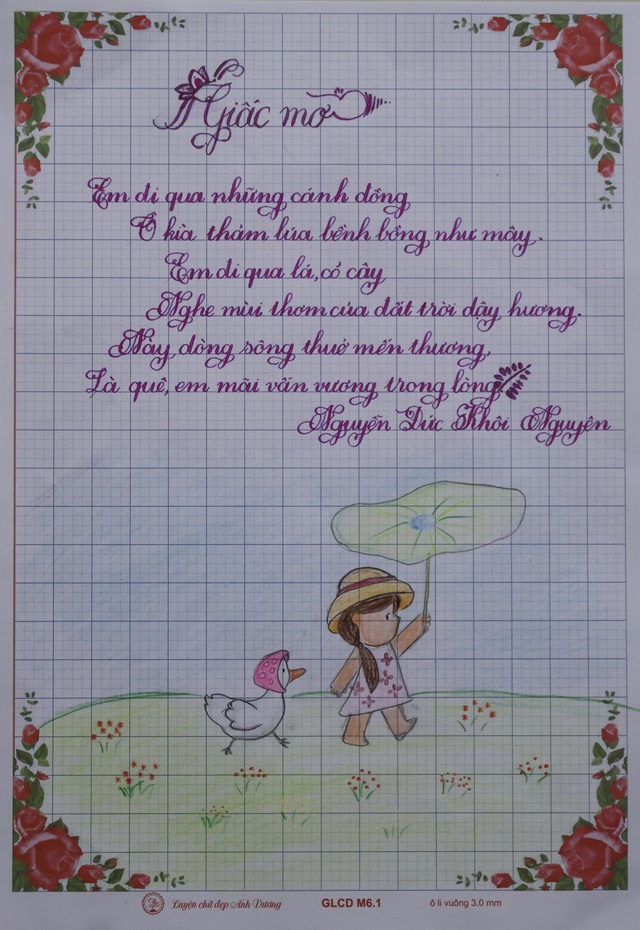 Giấc mơ
Em đi qua những cánh đồng
Ồ kìa thảm lúa bềnh bồng như mây.
Em đi qua lá, cỏ cây
Nghe mùi thơm của đất trời dậy hương.
Này dòng sông thuở mến thương,
Là quê, em mãi vấn vương trong lòng
Nguyễn Đức Khôi Nguyên
Luyện chữ đẹp Ánh Dương GLCD M6.1 ô li vuông 3.0 mm